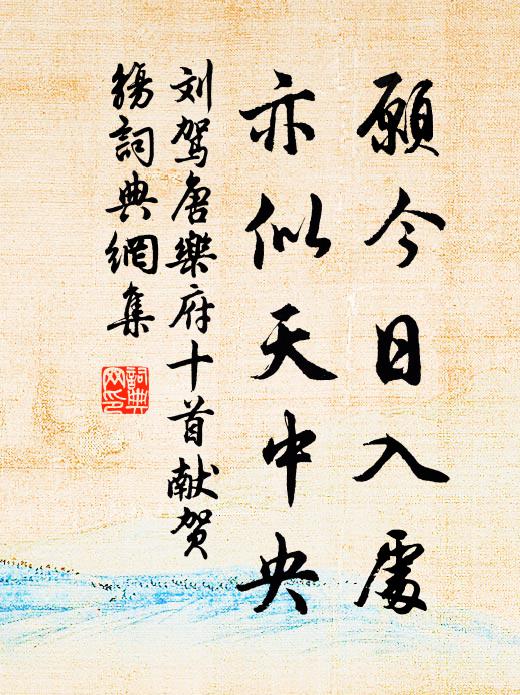 願今日入處
亦似天中央
刘駕唐樂府十首献贺
觴詞典網集
詞典網印